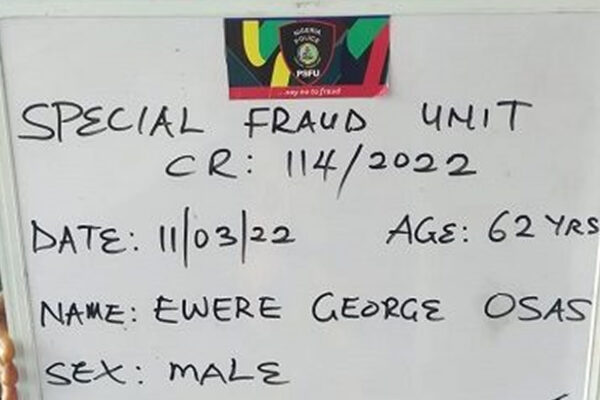 NIGERIA
POLICE
PSFU
...say no to fraud
SPECIAL FRAUD UNIT
CR: 114/2022
DATE: 11/03/22 AGE: 62 YRS
NAME: EWERE GEORGE OSAS
SEX: MALE